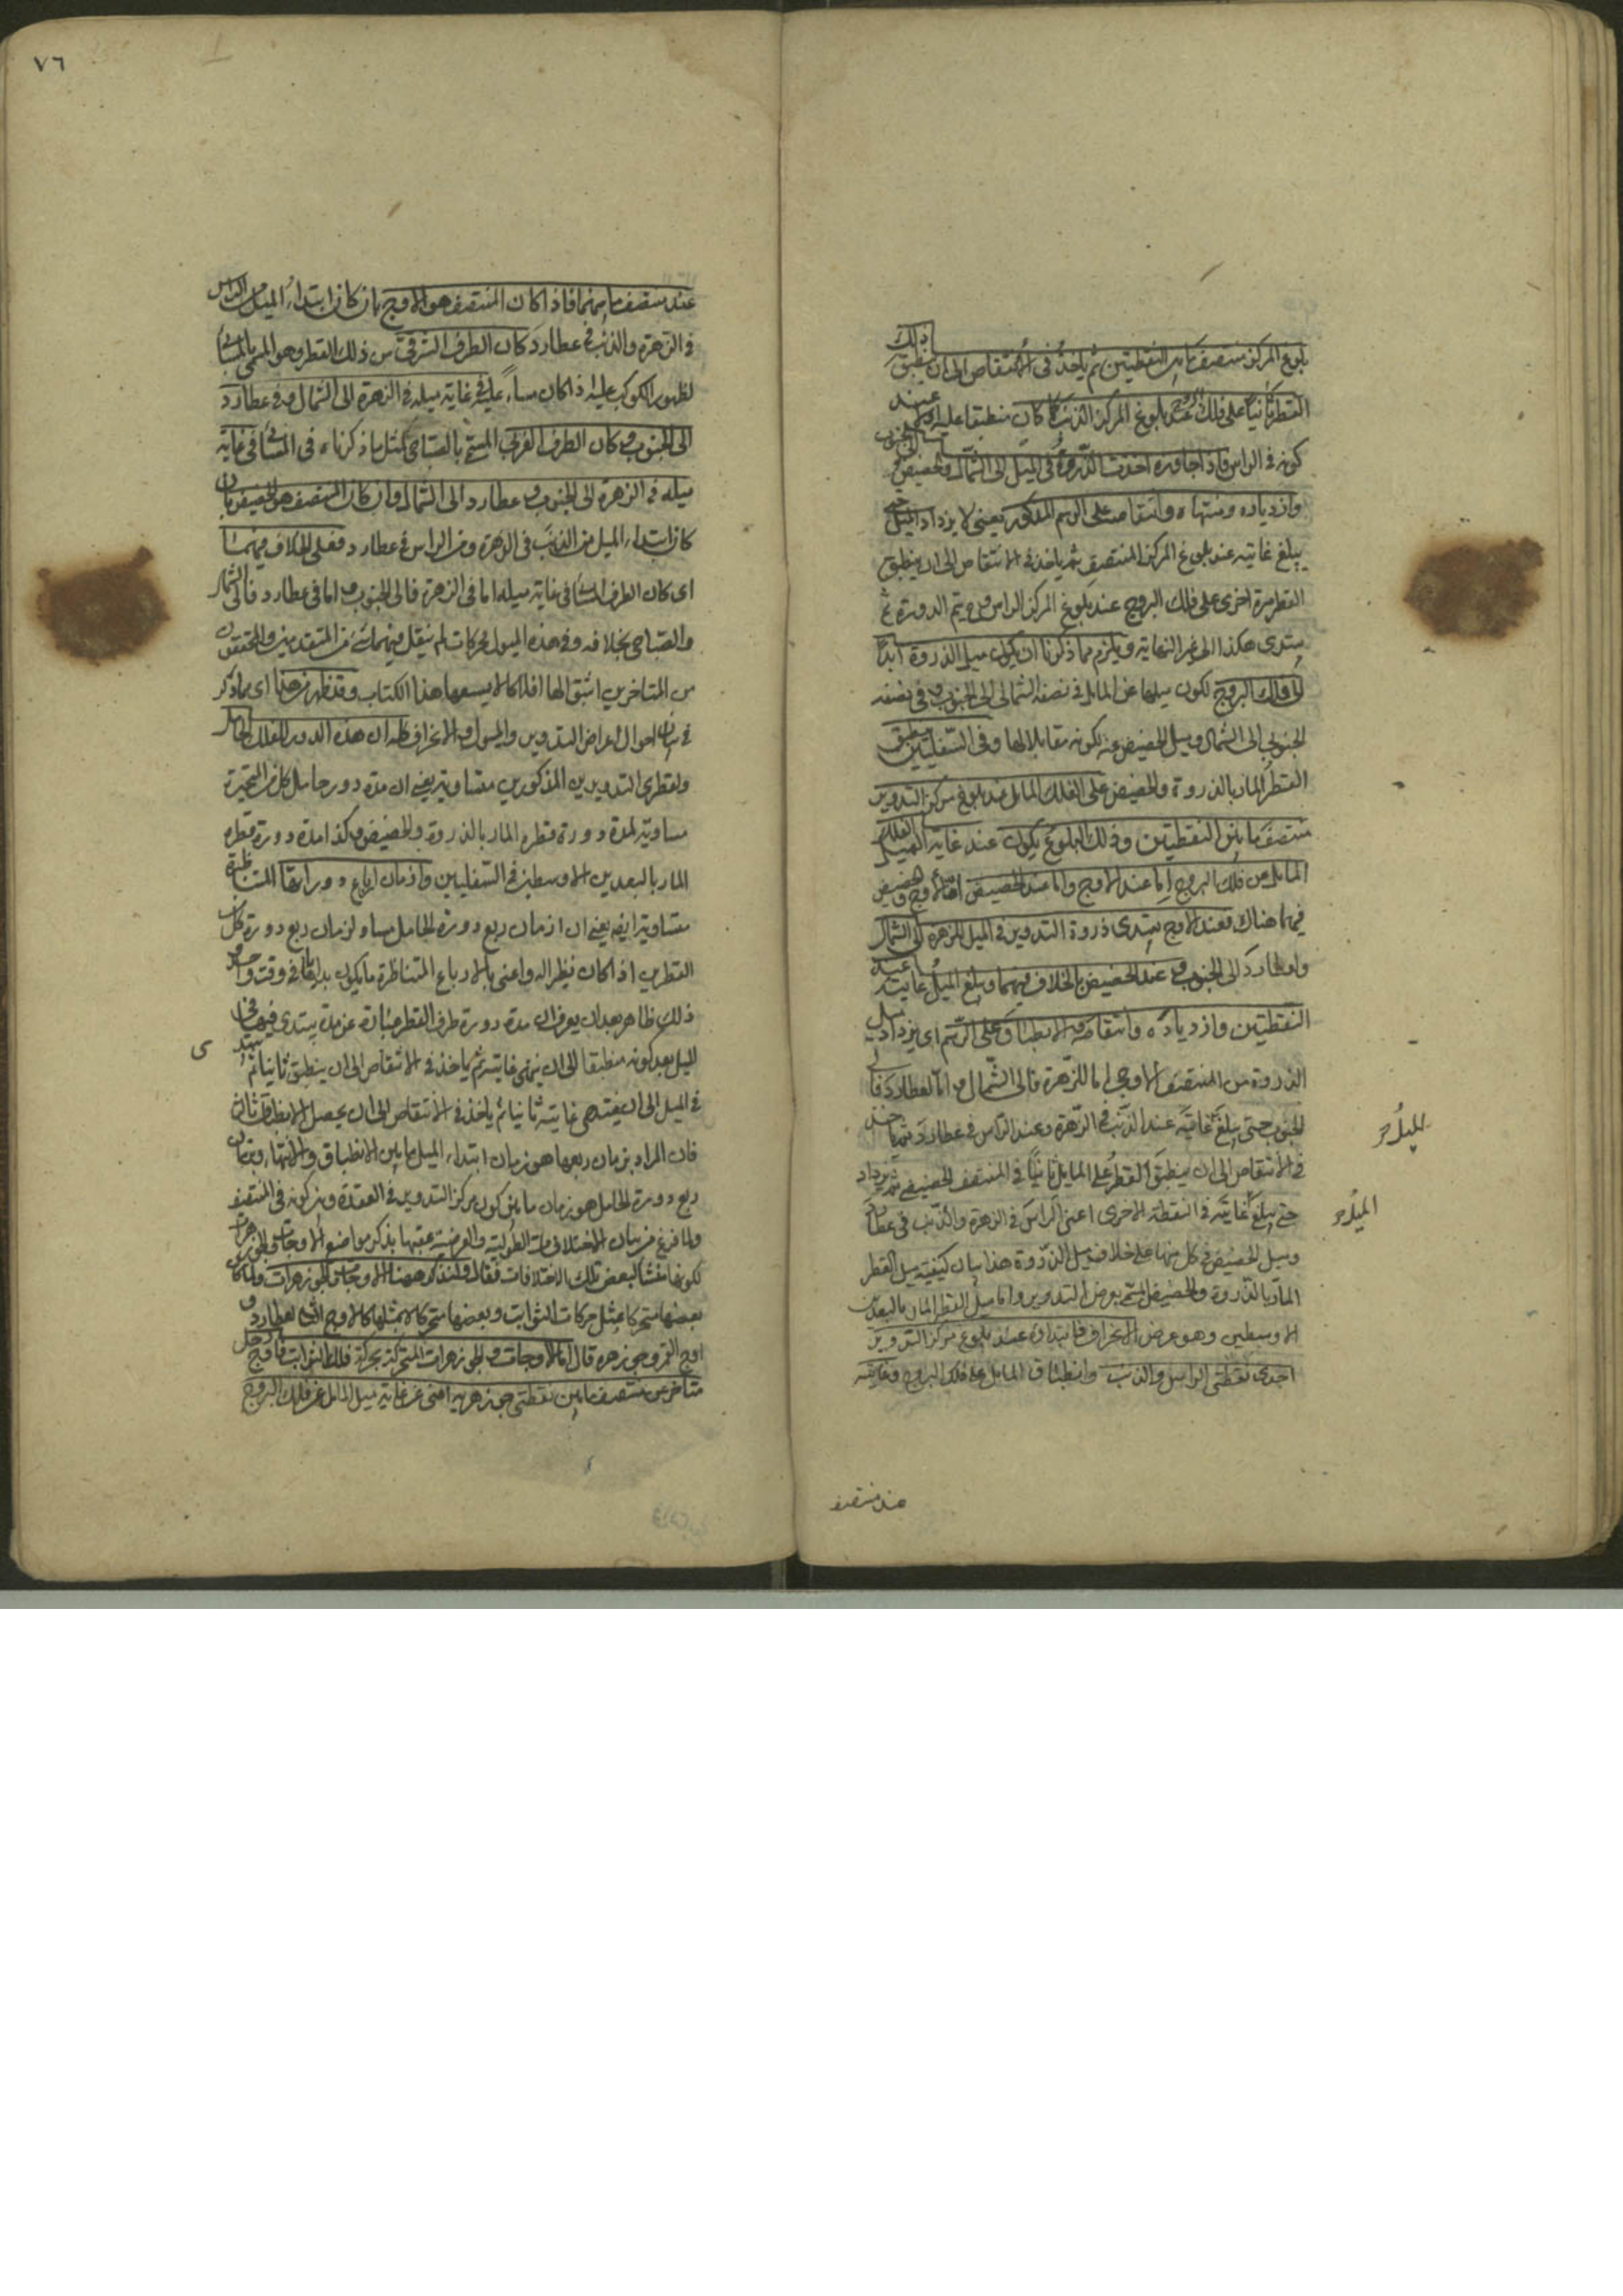 بلوغ المركز منتصف ما بين النقطتين ثم ياخذ في الانتقاص الى ان ينطبق ذلك
القطر ثانيا على فلك البروج عند بلوغ المركز الذنب كما كان منطبقا عليه عند
كونه في الراس فاذا جاوزه اخذت الذروة في الميل الى الشمال والحضيض الى الجنوب
وازدياده ومنتهاه وانتقاصه على الرسم المذكور يعني لا يزداد الميل حتى
يبلغ غايته عند بلوغ المركز المنتصف ثم ياخذ في الانتقاص الى ان ينطبق
القطر مرة اخرى على فلك البروج عند بلوغ المركز الراس ويتم الدورة ثم
يبتدى هكذا الى غير النهاية ويلزم مما ذكرنا ان يكون ميل الذروة ابدا
الى فلك البروج لكون ميلها عن المايل في نصفه الشمالى الى الجنوب وفي نصفه
الجنوبي الى الشمال وميل الحضيض عنه لكونه مقابلا لها وفي السفليين ينطبق
القطر المار بالذروة والحضيض على الفلك المايل عند بلوغ مركز التدوير
منتصف ما بين النقطتين وذلك البلوغ يكون عند غاية الميل الفلك
المايل عن فلك البروج اما عند الاوج واما عند الحضيض اذ الاوج والحضيض
فيهما هناك فعند الاوج يبتدى ذروة التدوير في الميل للزهرة الى الشمال
ولعطارد الى الجنوب وعند الحضيض بالخلاف فيهما ويبلغ الميل غايته عند
النقطتين وازدياده وانتقاصه الانطباق على الرسم اى يزداد ميل
الذروة من المنتصف الاوجى اما للزهرة فالى الشمال واما لعطارد فالى
الجنوب حتى يبلغ غايته عند الذنب في الزهرة وعند الراس في عطارد ثم ياخذ
في الانتقاص الى ان ينطبق القطر على المايل ثانيا في المنتصف الحضيضي ثم يزداد
حتى يبلغ غايته في النقطة الاخرى اعني الراس في الزهرة والذنب في عطارد
وميل الحضيض في كل منهما على خلاف ميل الذروة هذا بيان كيفية ميل القطر
المار بالذروة والحضيض المسمى بعرض التدوير واما ميل القطر المار بالبعدين
الاوسطين وهو عرض الانحراف فابتداؤه عند بلوغ مركز التدوير
احدى نقطتى الراس والذنب وانطباق المايل على فلك البروج وغايته
الميل
الميل
عند منتصف
٧٦
عند منتصف ما بينهما فاذا كان المنتصف هو الاوج بان كان ابتداء الميل من الراس
في الزهرة والذنب في عطارد كان الطرف الشرقي من ذلك القطر وهو المسمى بالمسائى
لظهور الكوكب عليه اذا كان مساء عليه في غاية ميله في الزهرة الى الشمال وفي عطارد
الى الجنوب وكان الطرف الغربي المسمى بالصباحى لمثل ما ذكرناه في المسائى في غاية
ميله في الزهرة الى الجنوب وعطارد الى الشمال وان كان المنتصف هو الحضيض بان
كان ابتداء الميل من الذنب في الزهرة ومن الراس في عطارد فعلى الخلاف فيهما
اى كان الطرف المسائى في غاية ميله اما في الزهرة فالى الجنوب واما في عطارد فالى الشمال
والصباحى بخلافه وفي هذه الميول لحركات لم ينقل فيها من المتقدمين والمحققون
من المتاخرين اثبتوا لها افلاكا لا يسعها هذا الكتاب وقد ظهر من هذا اى مما ذكر
في بيان احوال اعراض التداوير والميول والانحراف ظهر ان هذه الدور للفلك الحامل
ولقطرى التدويرين المذكورين متساوية يعني ان مدة دور حامل كل من المتحيرة
مساوية لمدة دورة قطره المار بالذروة والحضيض وكذا مدة دورة قطره
المار بالبعدين الاوسطين في السفليين وازمان ارباع دوراتها المتناظرة
متساوية ايضا يعني ان ازمان ربع دورة الحامل مساو لزمان ربع دورة كل
القطرين اذا كان نظيرا له واعنى بالارباع المتناظرة ما يكون بداياتها في وقت واحد
ذلك ظاهر بعد ان يعرف ان مدة دورة طرف القطر عبارة عن مدة يبتدى فيها في
الميل بعد كونه منطبقا الى ان ينتهي غايته ثم ياخذ في الانتقاص الى ان ينطبق ثانيا ثم يبتدى
في الميل الى ان ينتهى غايته ثانيا ثم ياخذ في الانتقاص الى ان يحصل الانطباق ثالثا
فان المراد بزمان ربعها هو زمان ابتداء الميل ما بين الانطباق والانتهاء وبزمان
ربع دورة الحامل هو زمان ما بين كون مركز التدوير في العقدة وبين كونه في المنتصف
ولما فرغ من بيان الاختلافات الطولية والعرضية عقبها بذكر مواضع الاوجات والجوزهرات
لكونها منشا لبعض تلك الاختلافات فقال ولنذكر ههنا الاوجات والجوزهرات ولما كان
بعضها متحركا بمثل حركات الثوابت وبعضها متحركا لا بمثلها كالاوج الثانى لعطارد و
اوج القمر وجوزهره قال اما الاوجات والجوزهرات المتحركة بحركة فلك الثوابت فاوج زحل
متاخر عن منتصف ما بين نقطتى جوزهريه اعنى عن غاية ميل المايل عن فلك البروج